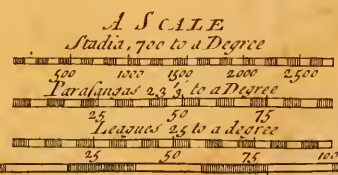 A SCALE
Stadia, 700 to a Degree
500 1000 1500 2000 2500
Parasangas 23⅓, to a Degree
25 50 75
Leagues 25 to a degree
25 50 75 100